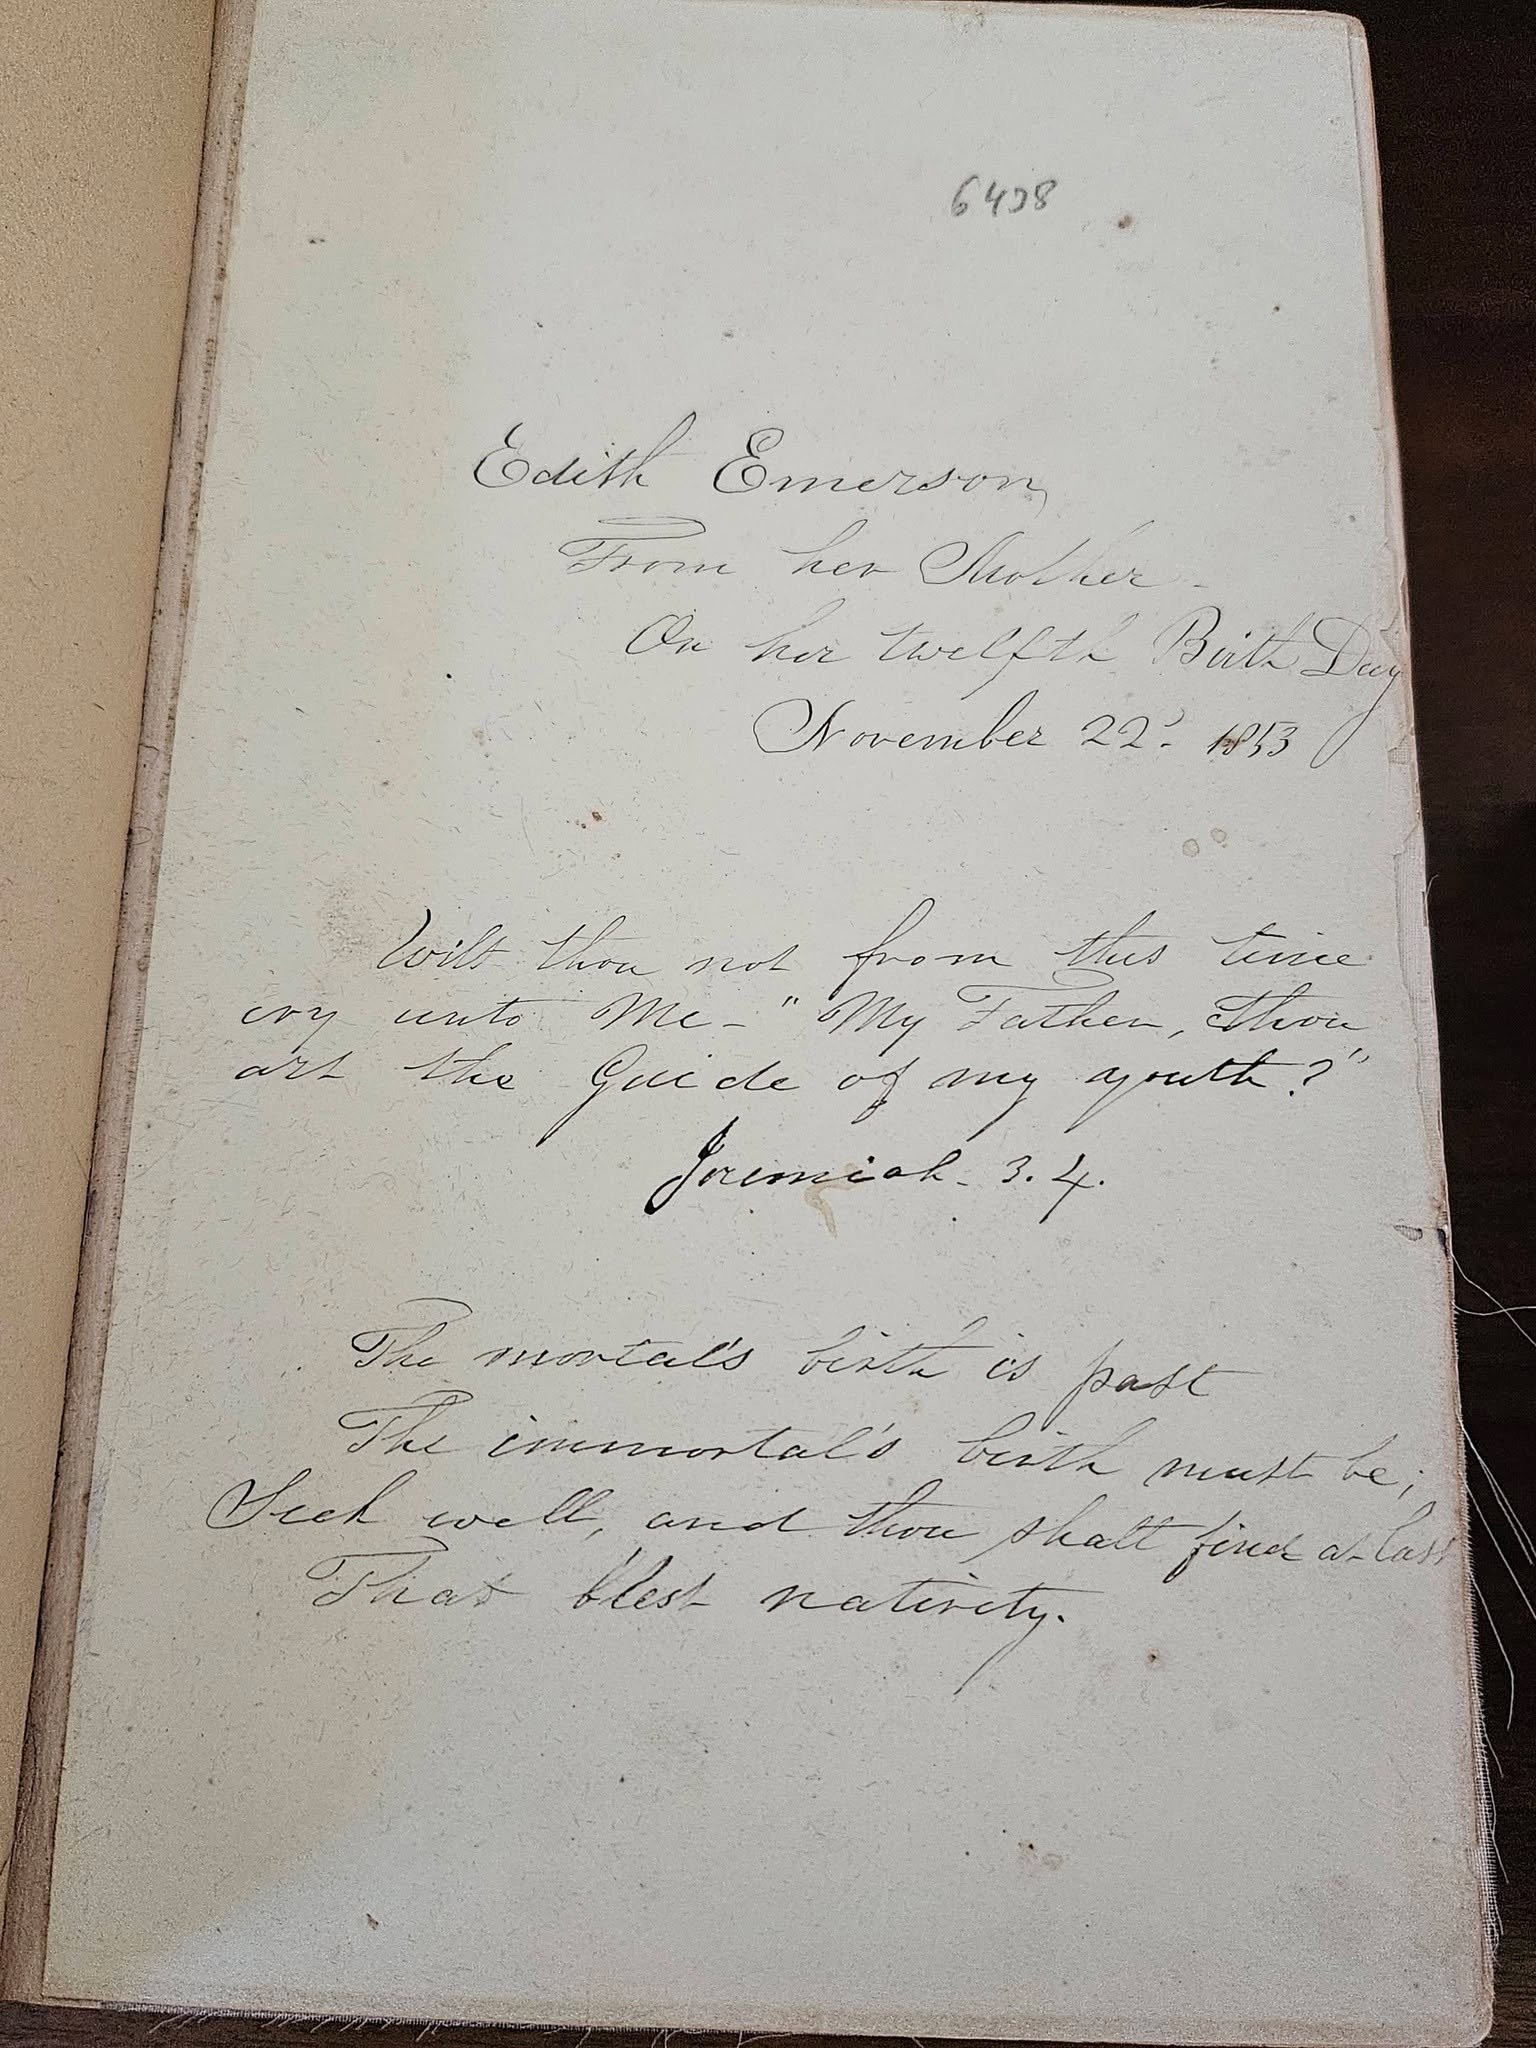 6438
Edith Emerson,
From her Mother -
On her twelfth Birth Day
November 22d. 1853
Wilt thou not from this time
cry unto Me - "My Father, Thou
art the Guide of my youth?"
Jeremiah - 3. 4.
The mortal's birth is past
The immortal's birth must be;
Seek well, and thou shalt find at last
That blest nativity.